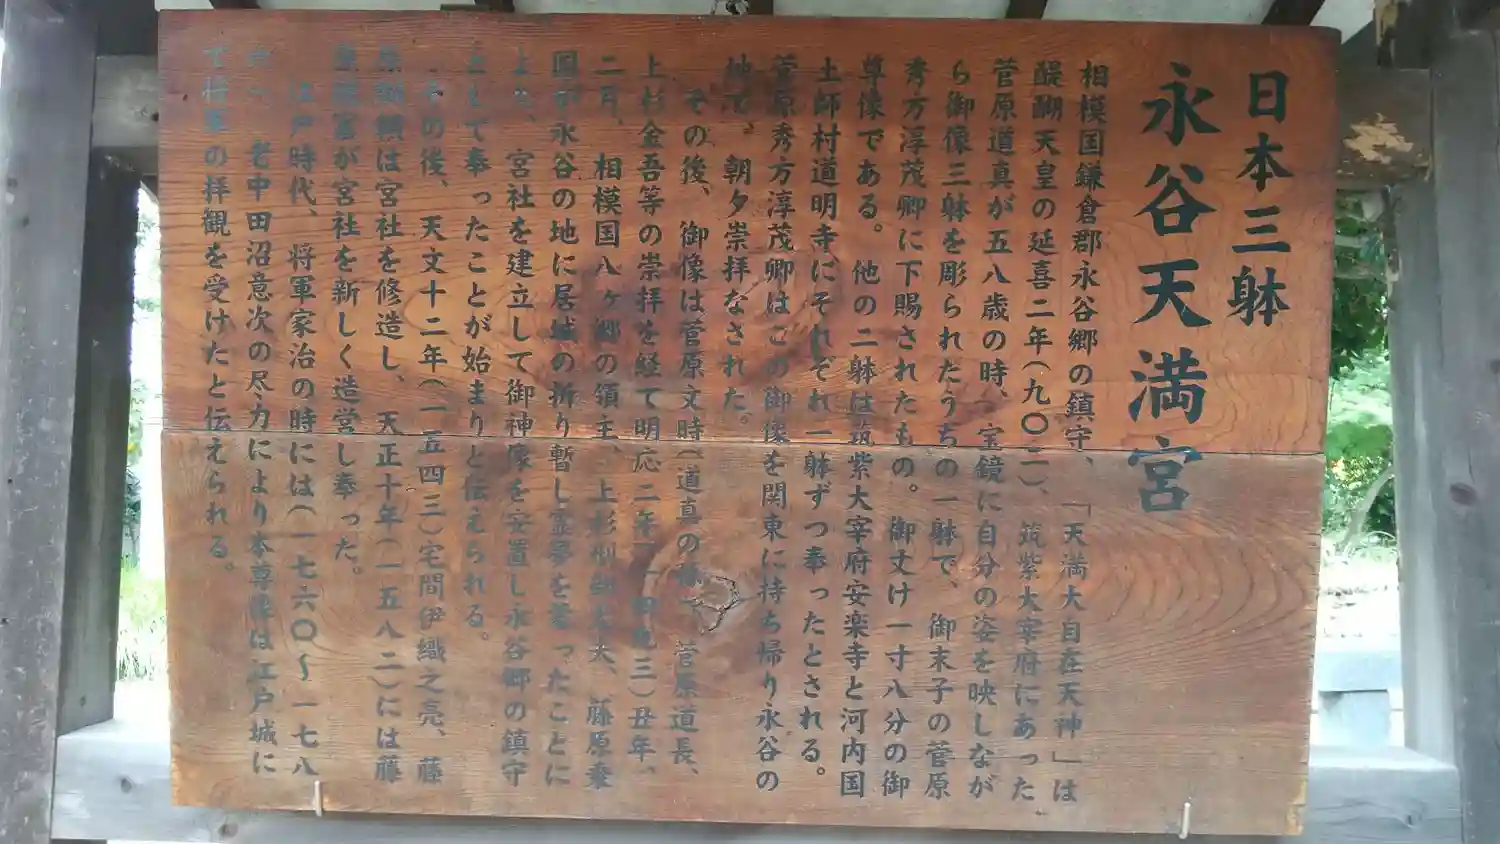 日本三躰
永谷天満宮
相模国鎌倉郡永谷郷の鎮守、「天満大自在天神」は
醍醐天皇の延喜二年(九〇二)、筑紫大宰府にあった
菅原道真が五八歳の時、宝鏡に自分の姿を映しなが
ら御像三躰を彫られたうちの一躰で、御末子の菅原
秀方淳茂卿に下賜されたもの。御丈け一寸八分の御
尊像である。他の二躰は筑紫大宰府安楽寺と河内国
土師村道明寺にそれぞれ一躰ずつ奉ったとされる。
菅原秀方淳茂卿はこの御像を関東に持ち帰り永谷の
地で、朝夕崇拝なされた。
その後、御像は菅原文時(道真の孫)、菅原道長、
上杉金吾等の崇拝を経て明応二年(一四九三)丑年、
二月、相模国八ヶ郷の領主、上杉刑部大夫、藤原乗
国が永谷の地に居城の折り暫し霊夢を蒙ったことに
より、宮社を建立して御神像を安置し永谷郷の鎮守
として奉ったことが始まりと伝えられる。
その後、天文十二年(一五四三)宅間伊織之亮、藤
原規頼は宮社を修造し、天正十年(一五八二)には藤
原規富が宮社を新しく造営し奉った。
江戸時代、将軍家治の時には(一七六〇〜一七八
六)、老中田沼意次の尽力により本尊像は江戸城に
て将軍の拝観を受けたと伝えられる。